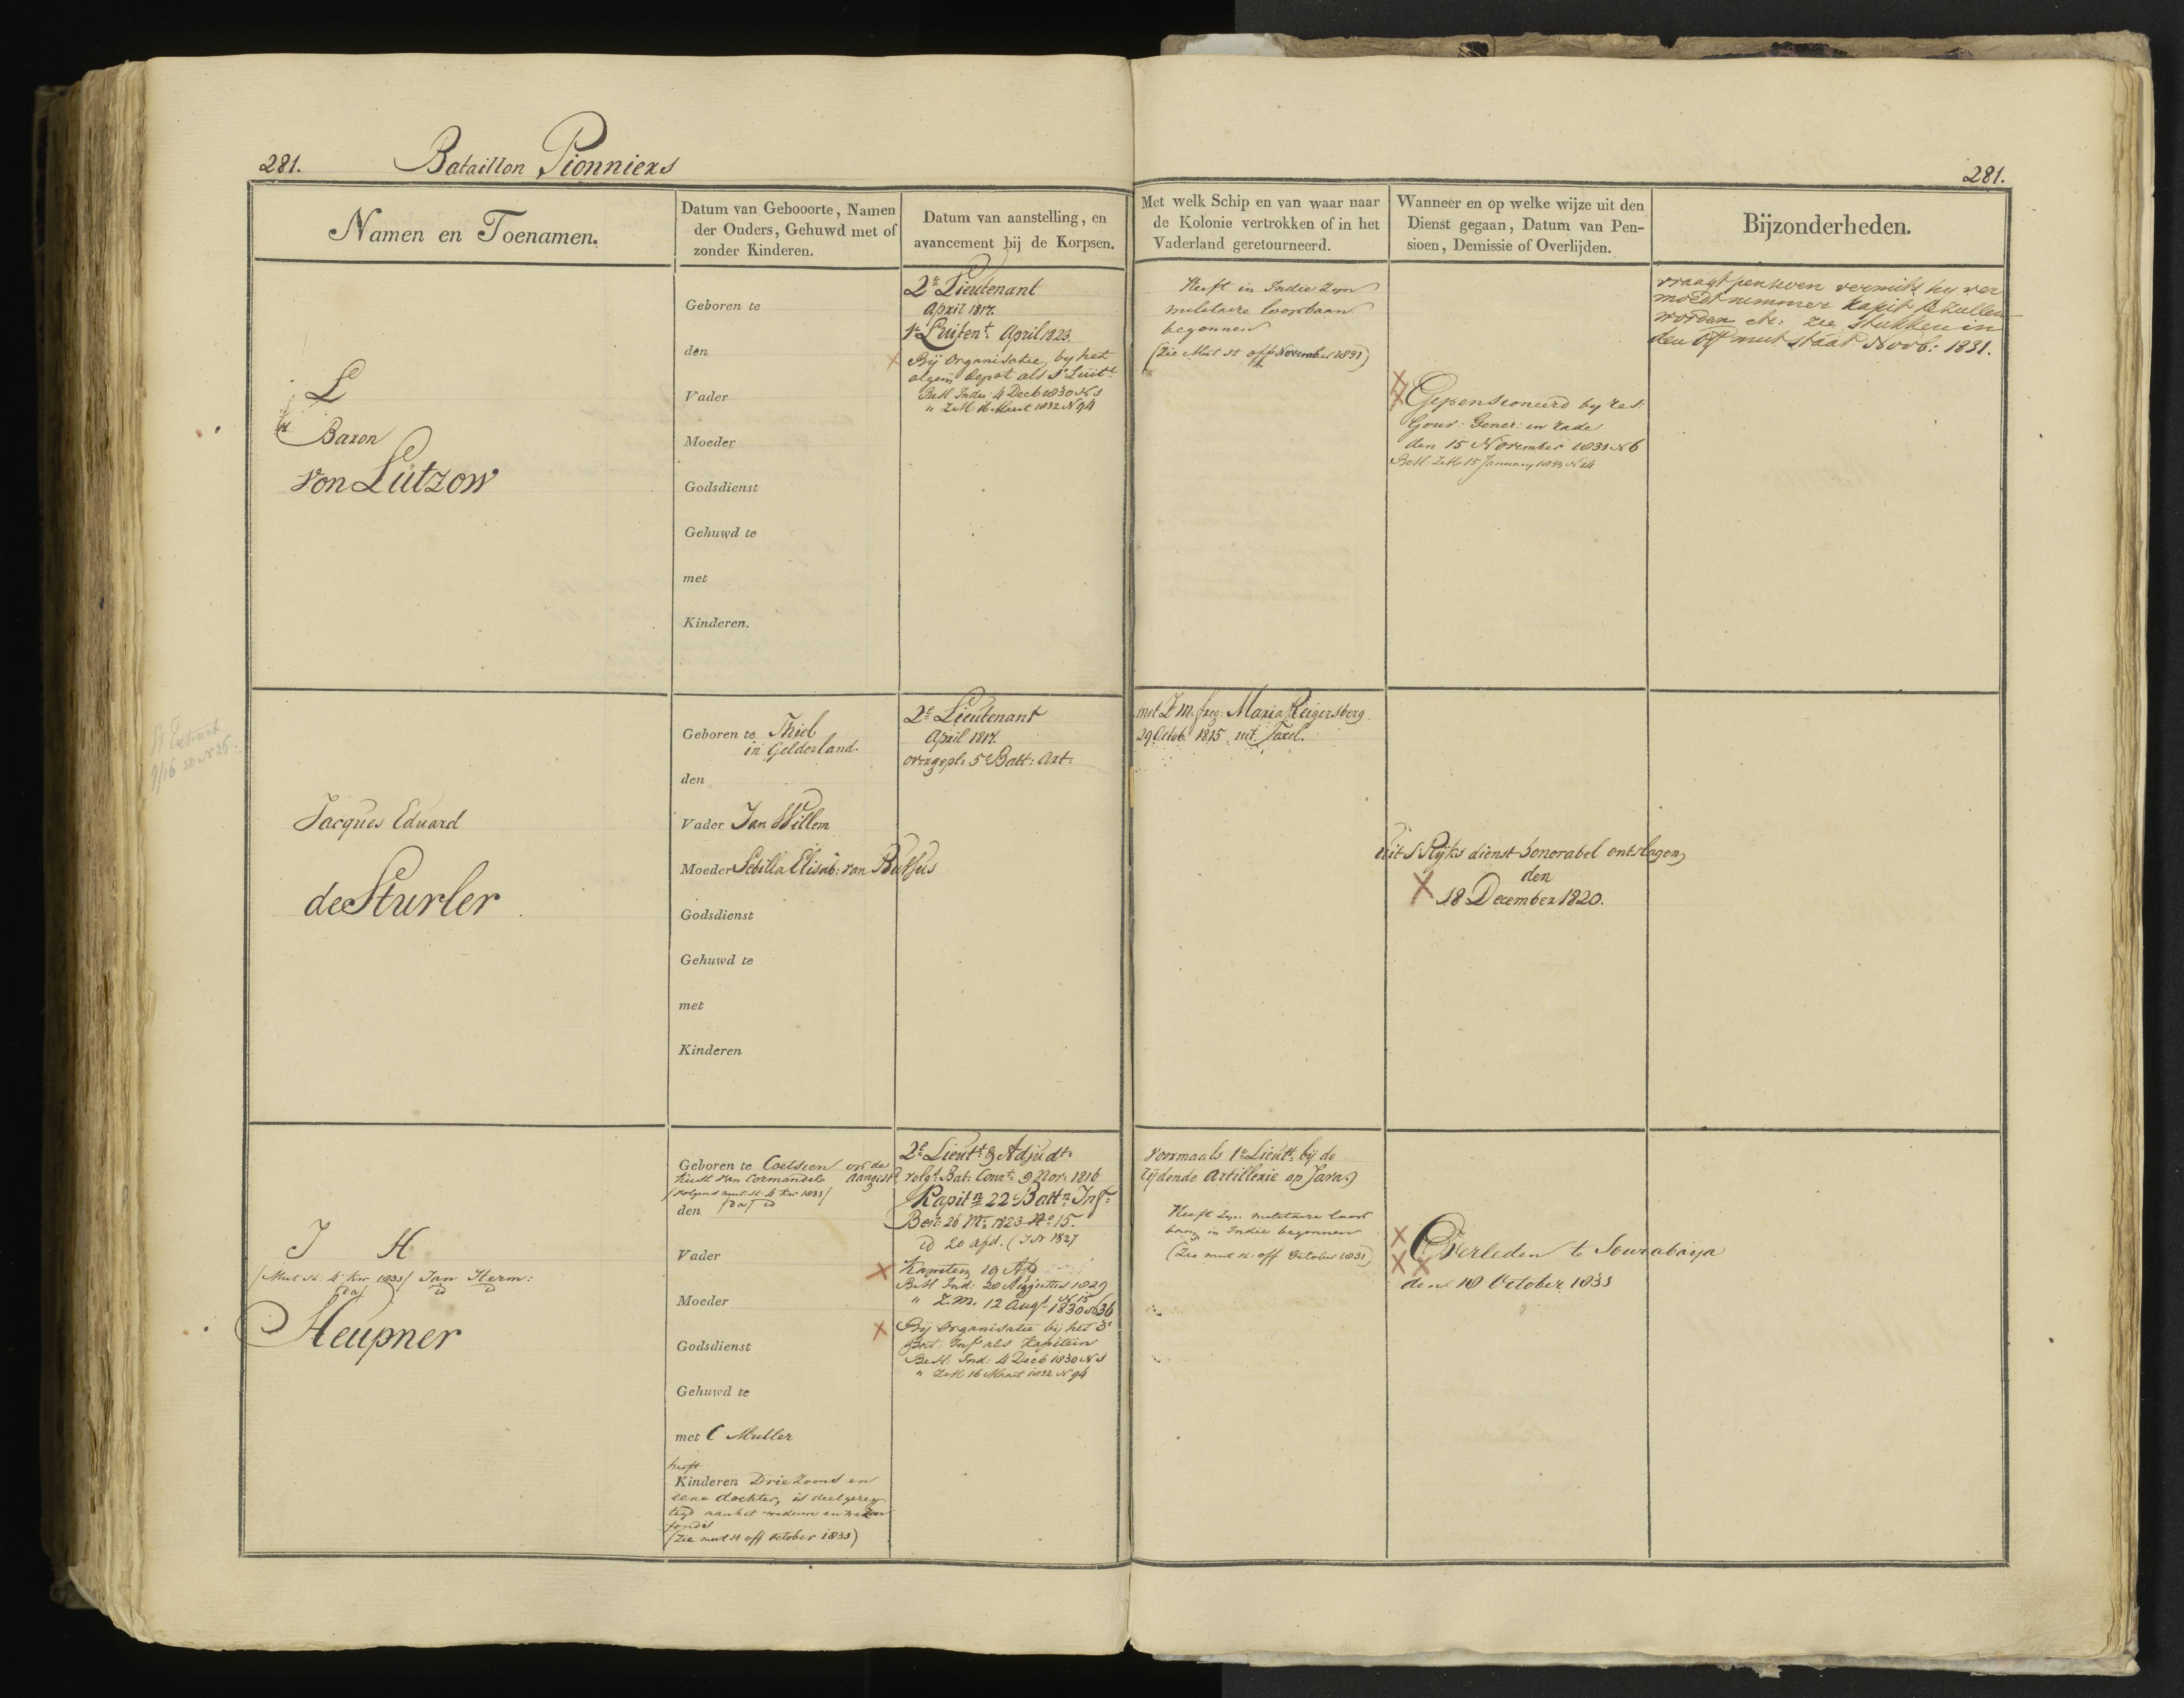 281.
Bataillon Pionniers
281.
Namen en Toenamen.
Datum van Gebooorte, Namen
der Ouders, Gehuwd met of
zonder Kinderen.
Datum van aanstelling, en
avancement bij de Korpsen.
Met welk Schip en van waar naar
de Kolonie vertrokken of in het
Vaderland geretourneerd.
Wanneer en op welke wijze uit den
Dienst gegaan, Datum van Pen-
sioen, Demissie of Overlijden.
Bijzonderheden.
L
Baron
von Lützow
Geboren te
den
Vader
Moeder
Godsdienst
Gehuwd te
met
Kinderen.
2e Lieutenant
April 1817.
1e Luitent. April 1823.
Bij Organisatie, by het
algem depot als 1e Luitt
Besl Indie 4 Decb 1830 N 1
" ZM 16 Maart 1832 N 94
Heeft in Indie Zyn
militaire loopbaan
begonnen
(Zie Mut st off November 1831)
Gepensioneerd by res:
Gouv: Gener: in rade
den 15 November 1831 N 6
Besl: ZM 15 January 1833 N 24
vraagt pensioen vermits hy ver
moedt nimmer kapit te zullen
worden etc: zie stukken in
den off mut staat Novb: 1831.
Jacques Eduard
de Sturler
Geboren te Thiel
in Gelderland.
den
Vader Jan Willem
Moeder Sibilla Elisab: van
Godsdienst
Gehuwd te
met
Kinderen
2e Lieutenant
April 1817.
overgepl: 5e Batt: Art:
met Z.M. freg: Maria Reigersberg
29 Octob. 1815 uit Texel.
Uit S Rijks dienst honorabel ontslagen
den
18 December 1820.
J H
(Mut st. 4e Kw 1833) Jan Herm:
Heupner
Geboren te Coetsien op de
Kust van Cormandels
(volgens mut: st. 4 Kw 1833)
den
Vader
Moeder
Godsdienst
Gehuwd te
met C Muller
heeft
Kinderen Drie Zoons en
eene dochter, is deelgereg
tigd aan het weduwen en weezen
fonds
(Zie mut st off October 1833)
2e Lieutt & Adjudt.
aangestd volgs Bat: Cour: 9 Nov: 1816
Kapitn 22e Battn Inf:
Besl: 26 Mt 1823 No 15.
id 20 afd. 1827
Kapitein 19 Afd
Besl Ind: 20 Augustus 1829
N 15
" Z.M. 12 Augt 1830 N 36
Bij Organisatie bij het 3e
Bat: Inf als Kapitein
Besl. Ind: 4 Decb 1830 N 1
" ZM 16 Maart 1832 N 94
Voormaals 1e Lieutt. bij de
rijdende Artillerie op Java
Heeft Zyn militaire loop
baan in Indie begonnen
(Zie mut st: off October 1831)
Overleden te Sourabaya
den 18 October 1833